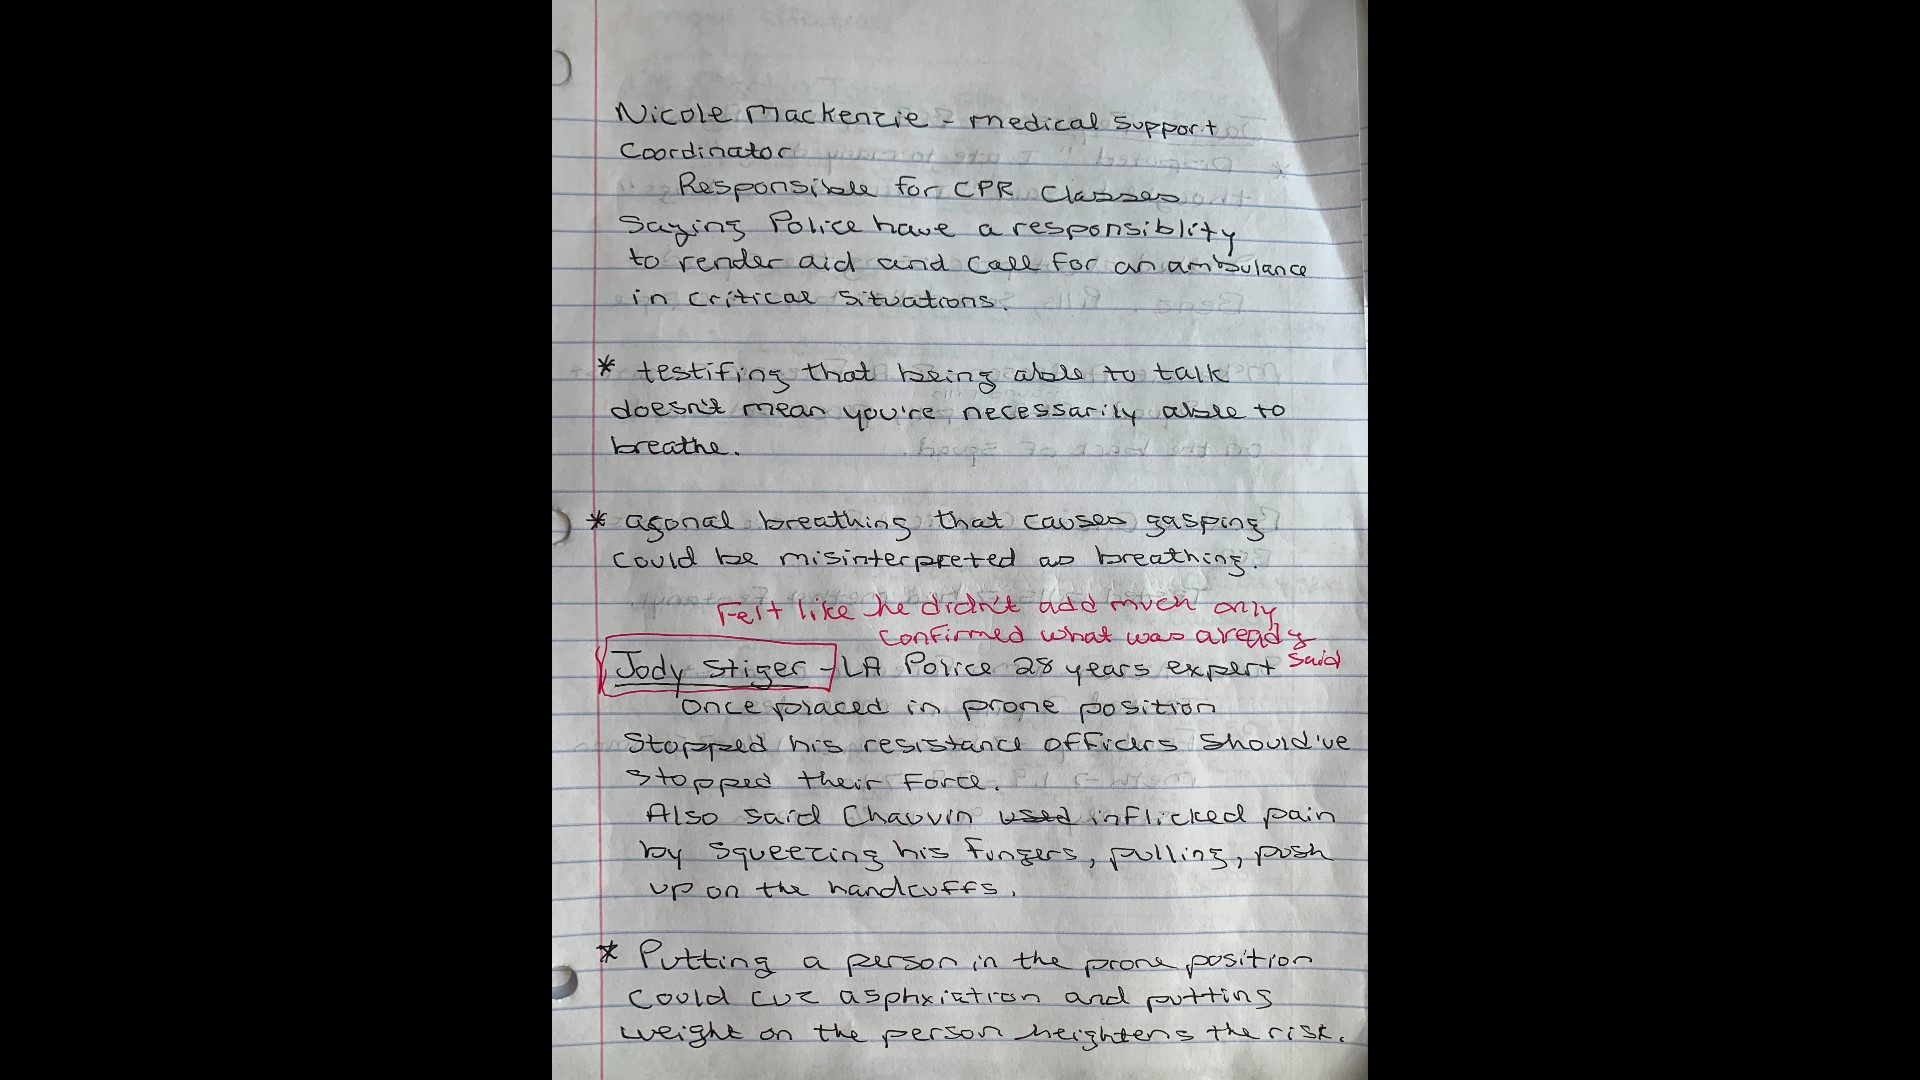 Nicole Mackenzie - medical support
Coordinator
Responsible for CPR Classes
Saying Police have a responsiblity
to render aid and call for an ambulance
in critical situations.
* testifing that being able to talk
doesn't mean you're necessarily able to
breathe.
* agonal breathing that causes gasping
could be misinterpreted as breathing.
Felt like he didn't add much only
confirmed what was aready
said
Jody Stiger - LA Police 28 years expert
Once placed in prone position
Stopped his resistance officers should've
stopped their force.
Also said Chauvin used inflicked pain
by squeezing his fungers, pulling, push
up on the handcuffs.
* Putting a person in the prone position
could cuz asphxiation and putting
weight on the person heightens the risk.